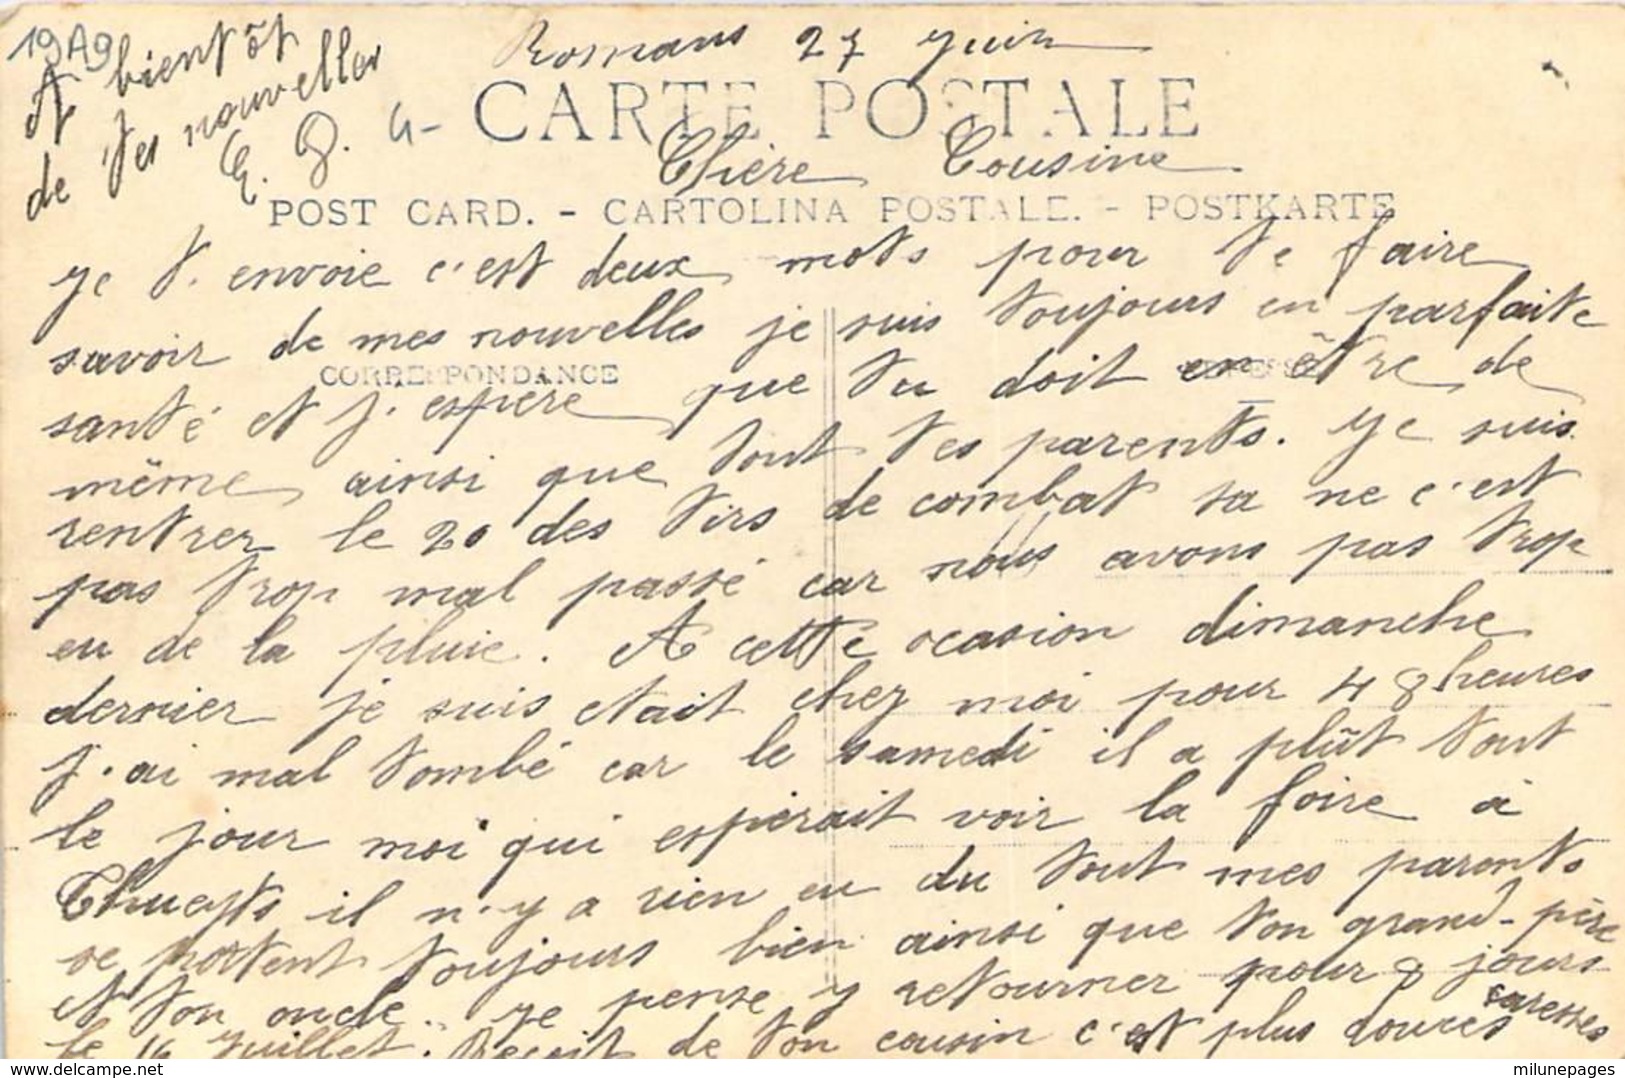 19A9
A bientôt
de tes nouvelles
E. J. G-
Romans 27 Juin
CARTE POSTALE
Chère Cousine
POST CARD. - CARTOLINA POSTALE. - POSTKARTE
Je t. envoie c'est deux mots pour te faire
savoir de mes nouvelles je suis toujours en parfaite
CORRESPONDANCE
ADRESSE
santé et j. espère que tu doit en être de
même ainsi que tout tes parents. Je suis
rentrer le 20 des tirs de combat sa ne c'est
pas trop mal passé car nous avons pas trop
eu de la pluie. A cette ocasion dimanche
dernier je suis etait chez moi pour 48 heures
j. ai mal tombé car le samedi il a plût tout
le jour moi qui esperait voir la foire à
Thueyts il n'y a rien eu du tout mes parents
se portent toujours bien ainsi que ton grand-père
et ton oncle. Je pense y retourner pour 8 jours
le 14 Juillet. Reçoit de ton cousin c'est plus douces caresses
delcampe.net
milunepages